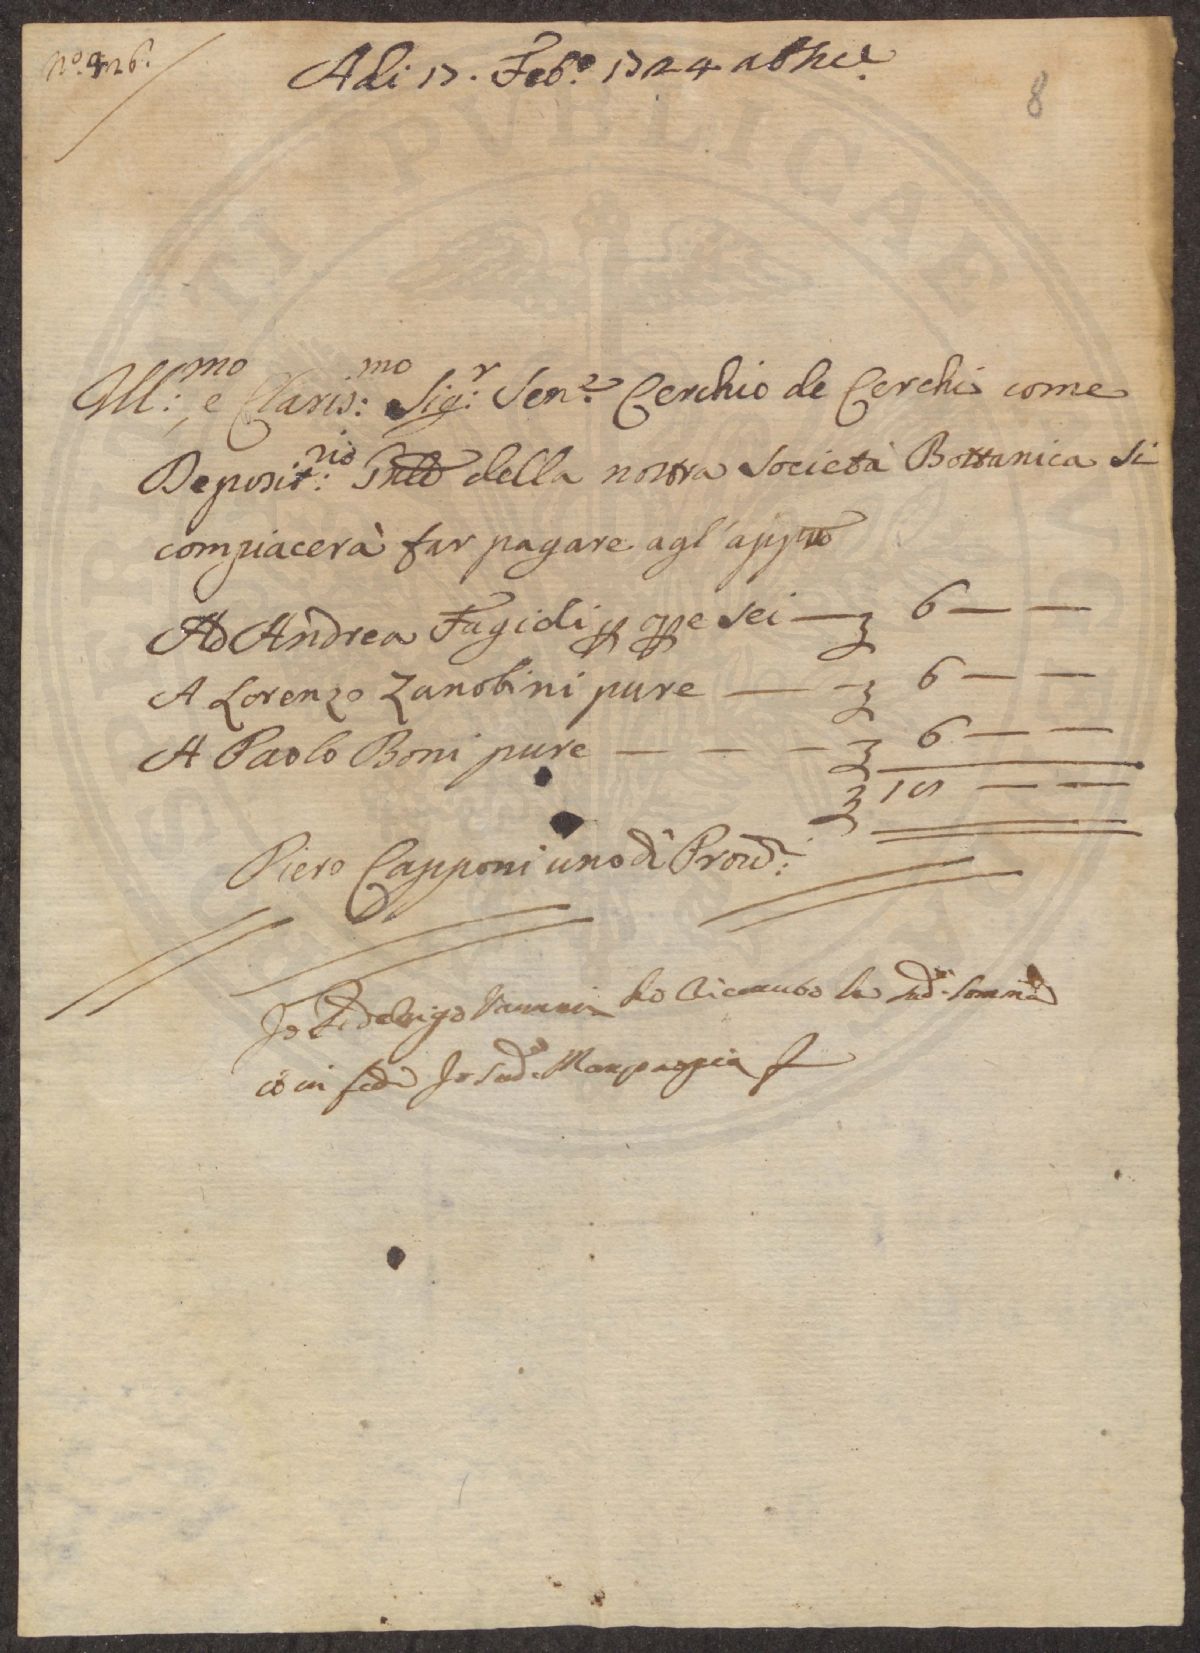 N.º 426.
Adi 17. Feb.º 1724 ab Inc.e
8
Ill:mo e Claris:mo Sig:r Sen:re Cerchio de Cerchi come
Deposit:rio della nostra Società Bottanica si
compiacerà far pagare agl'appiè
Ad Andrea Fagioli p ope sei — 6 — —
A Lorenzo Zanobini pure — — 6 — —
A Paolo Boni pure — — — — 6 — —
18 — —
Piero Capponi uno di Prov:ri
Io Federigo Vannini ho ricevuto la sud.a somma
in fede Io sud.o Manpropria